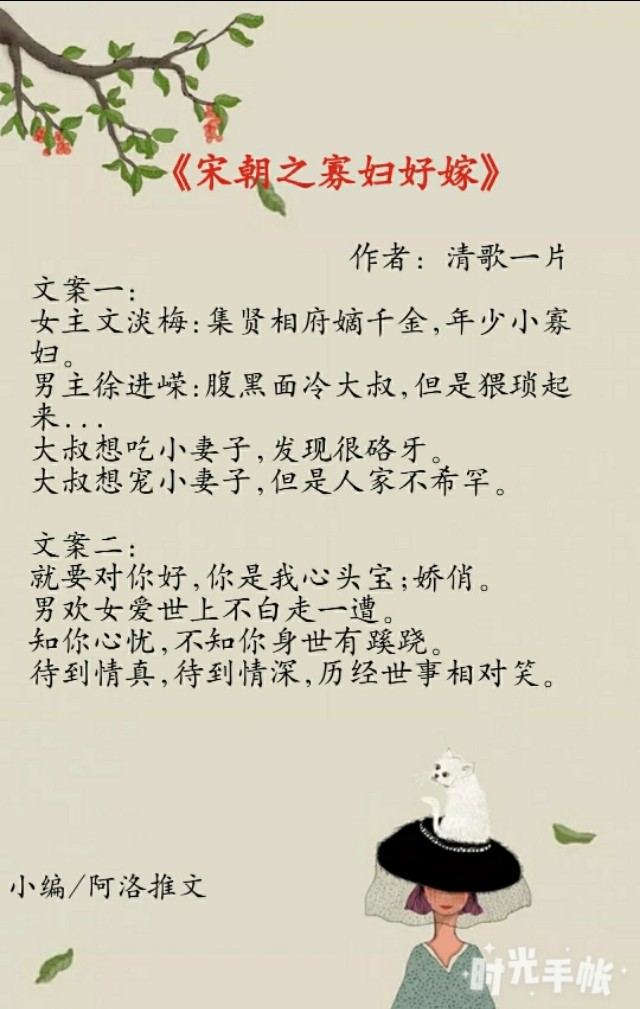 《宋朝之寡妇好嫁》
作者：清歌一片
文案一：
女主文淡梅:集贤相府嫡千金,年少小寡
妇。
男主徐进嵘:腹黑面冷大叔,但是猥琐起
来...
大叔想吃小妻子,发现很硌牙。
大叔想宠小妻子,但是人家不希罕。
文案二：
就要对你好,你是我心头宝;娇俏。
男欢女爱世上不白走一遭。
知你心忧,不知你身世有蹊跷。
待到情真,待到情深,历经世事相对笑。
小编/阿洛推文
时光手帐